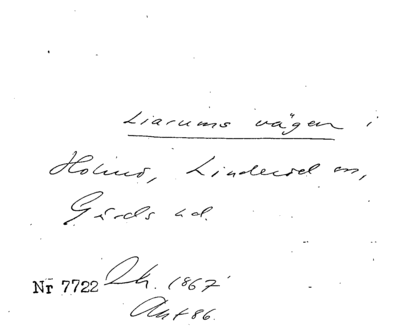 Liarums vägen i
Holmö, Linderöd sn,
Gärds hd.
Nr 7722 Lh. 1867
Akt 86.